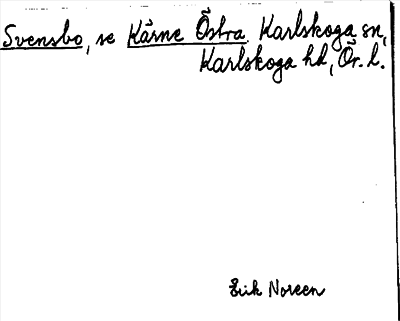 Svensbo, se Kärne Östra Karlskoga sn,
Karlskoga hd, Ör. l.
Erik Noreen